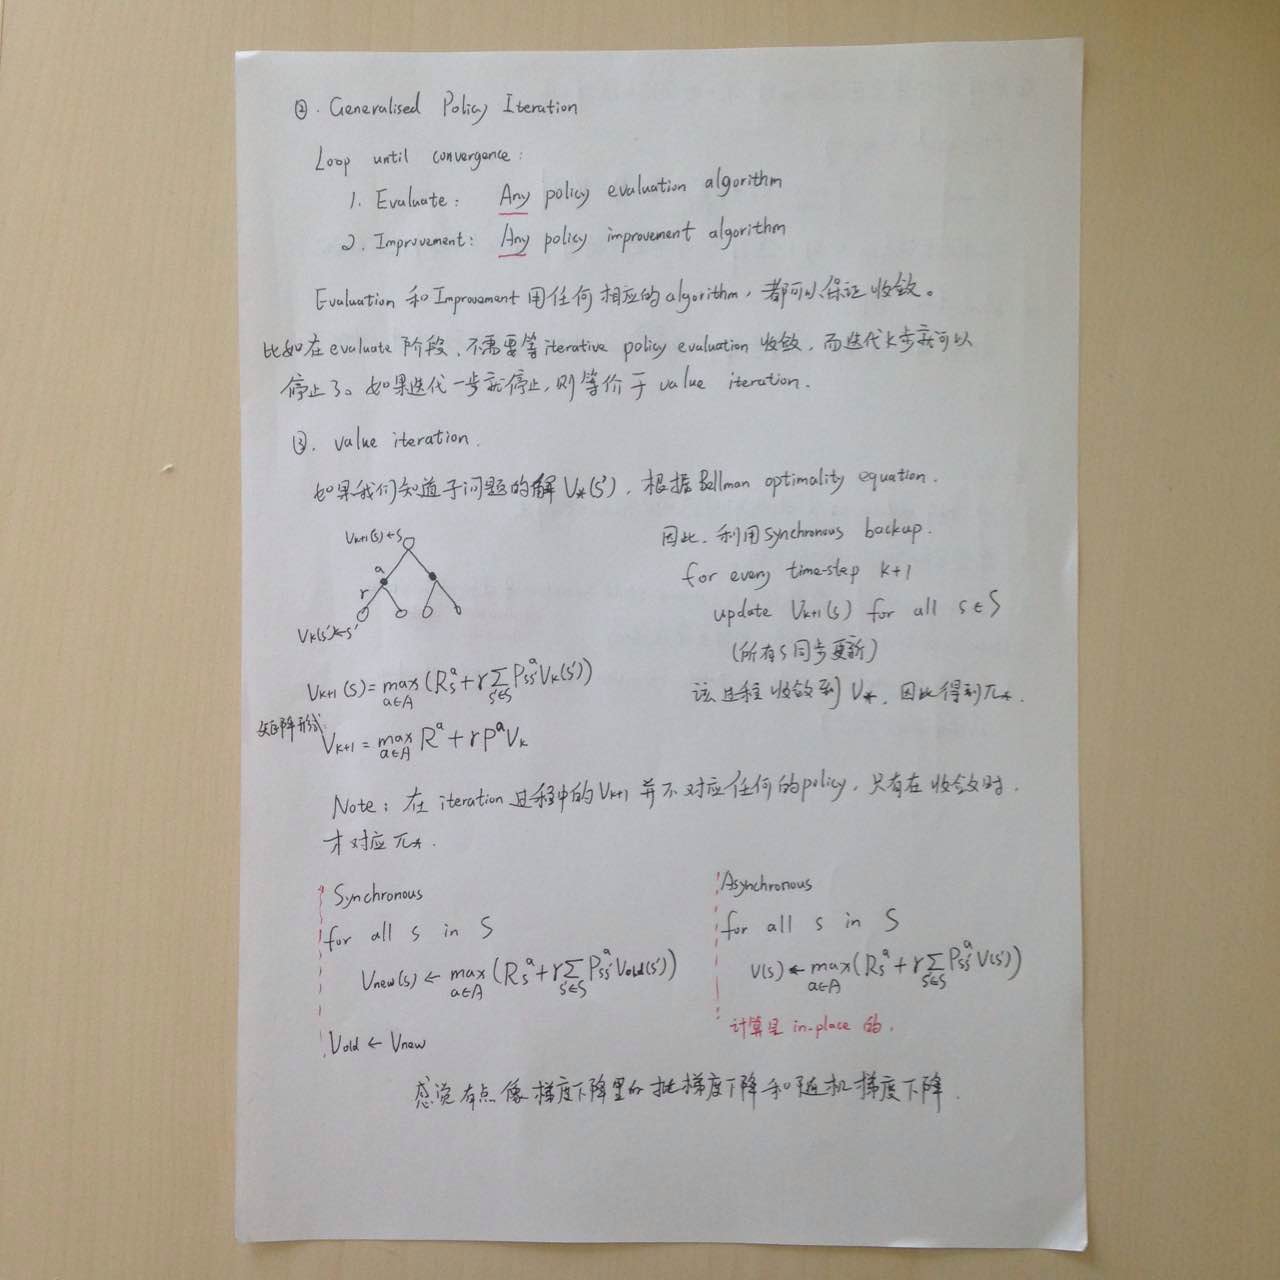 ②. Generalised Policy Iteration
Loop until convergence:
1. Evaluate: Any policy evaluation algorithm
2. Improvement: Any policy improvement algorithm
Evaluation 和Improvement 用任何相应的algorithm，都可以保证收敛。
比如在evaluate 阶段、不需要等iterative policy evaluation 收敛，而迭代k步就可以
停止了。如果迭代一步就停止，则等价于 value iteration.
③. value iteration.
如果我们知道子问题的解 V*(s')，根据Bellman optimality equation.
Vk+1(s)←s
a
r
Vk(s')←s'
因此、利用synchronous backup.
for every time-step k+1
update Vk+1(s) for all s∈S
(所有s同步更新)
该过程收敛到 V*，因此得到π*.
Vk+1(s) = max a∈A (Rs^a + γ∑s'∈S Pss'^a Vk(s'))
矩阵形式:
Vk+1 = max a∈A R^a + γP^a Vk
Note: 在 iteration 过程中的Vk+1 并不对应任何的policy，只有在收敛时.
才对应π*.
Synchronous
for all s in S
Vnew(s) ← max a∈A (Rs^a + γ∑s'∈S Pss'^a Vold(s'))
Vold ← Vnew
Asynchronous
for all s in S
V(s) ← max a∈A (Rs^a + γ∑s'∈S Pss'^a V(s'))
计算是 in-place 的.
感觉有点像梯度下降里的批梯度下降和随机梯度下降.